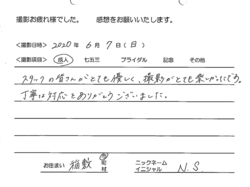 撮影お疲れ様でした。 感想をお願いいたします。
<撮影日時> 2020年 6月 7日(日)
<撮影項目> 成人 七五三 ブライダル 記念 その他
スタッフの皆さんがとても優しく、撮影がとても楽しかったです。
丁寧な対応ありがとうございました。
お住まい 町 村 ニックネーム イニシャル N.S.